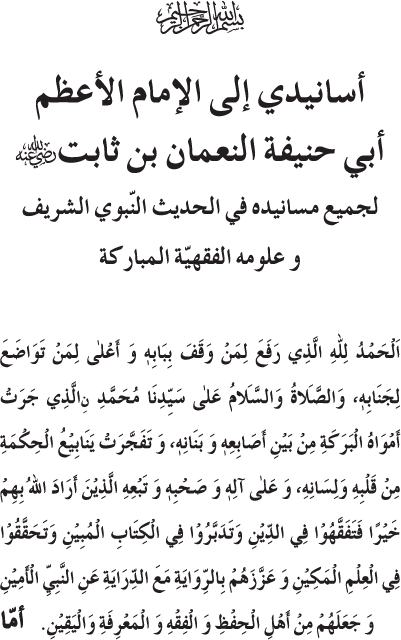 بسم الله الرحمن الرحيم
أسانيدي إلى الإمام الأعظم
أبي حنيفة النعمان بن ثابت رضي الله عنه
لجميع مسانيده في الحديث النّبوي الشريف
و علومه الفقهيّة المباركة
اَلْحَمْدُ لِلّٰهِ الَّذِي رَفَعَ لِمَنْ وَقَفَ بِبَابِهٖ وَ أَعْلٰى لِمَنْ تَوَاضَعَ
لِجَنَابِهٖ، وَالصَّلَاةُ وَالسَّلَامُ عَلٰى سَيِّدِنَا مُحَمَّدِ نِالَّذِي جَرَتْ
أَمْوَاهُ الْبَرَكَةِ مِنْ بَيْنِ أَصَابِعِهٖ وَ بَنَانِهٖ، وَ تَفَجَّرَتْ يَنَابِيْعُ الْحِكْمَةِ
مِنْ قَلْبِهٖ وَلِسَانِهٖ، وَ عَلٰى آلِهٖ وَ صَحْبِهٖ وَ تَبْعِهِ الَّذِيْنَ أَرَادَ اللهُ بِهِمْ
خَيْرًا فَتَفَقَّهُوْا فِي الدِّيْنِ وَتَدَبَّرُوْا فِي الْكِتَابِ الْمُبِيْنِ وَتَحَقَّقُوْا
فِي الْعِلْمِ الْمَكِيْنِ وَ عَزَّزَهُمْ بِالرِّوَايَةِ مَعَ الدِّرَايَةِ عَنِ النَّبِيِّ الْأَمِيْنِ
وَ جَعَلَهُمْ مِنْ أَهْلِ الْحِفْظِ وَ الْفِقْهِ وَ الْمَعْرِفَةِ وَالْيَقِيْنِ. أمّا